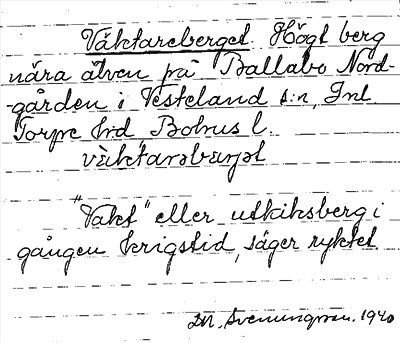 Väktareberget. Högt berg
nära älven på Ballabo Nord-
-gården i Vesteland s:n, Inl.
Torpe hrd Bohus l.
väktarəbærjət
"Vakt" eller utkiksberg i
gången krigstid, säger ryktet
M. Svenungsson. 1940